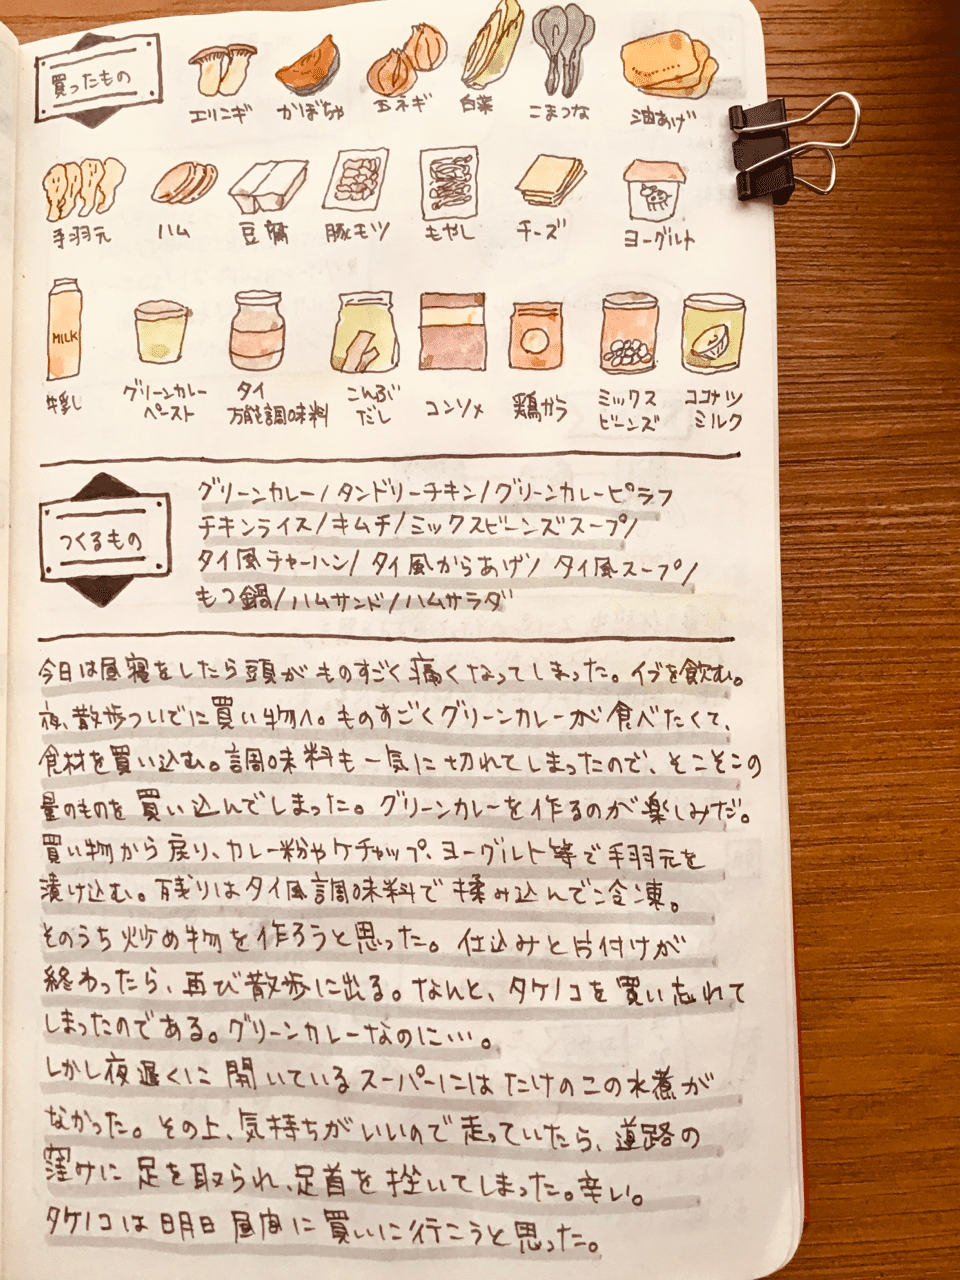 買ったもの
エリンギ かぼちゃ 玉ネギ 白菜 こまつな 油あげ
手羽元 ハム 豆腐 豚モツ もやし チーズ ヨーグルト
MILK
牛乳 グリーンカレーペースト タイ万能調味料 こんぶだし コンソメ 鶏がら ミックスビーンズ ココナツミルク
つくるもの
グリーンカレー/タンドリーチキン/グリーンカレーピラフ
チキンライス/キムチ/ミックスビーンズスープ/
タイ風チャーハン/タイ風からあげ/タイ風スープ/
もつ鍋/ハムサンド/ハムサラダ
今日は昼寝をしたら頭がものすごく痛くなってしまった。イブを飲む。
夜、散歩ついでに買い物へ。ものすごくグリーンカレーが食べたくて、
食材を買い込む。調味料も一気に切れてしまったので、そこそこの
量のものを買い込んでしまった。グリーンカレーを作るのが楽しみだ。
買い物から戻り、カレー粉やケチャップ、ヨーグルト等で手羽元を
漬け込む。残りはタイ風調味料で揉み込んで冷凍。
そのうち炒め物を作ろうと思った。仕込みと片付けが
終わったら、再び散歩に出る。なんと、タケノコを買い忘れて
しまったのである。グリーンカレーなのに…。
しかし夜遅くに開いているスーパーにはたけのこの水煮が
なかった。その上、気持ちがいいので走っていたら、道路の
窪みに足を取られ、足首を挫いてしまった。辛い。
タケノコは明日昼間に買いに行こうと思った。